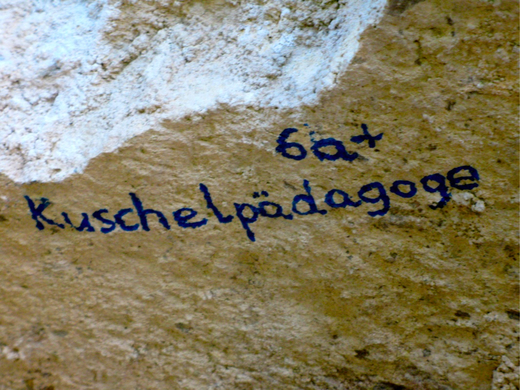 6a+
Kuschelpädagoge